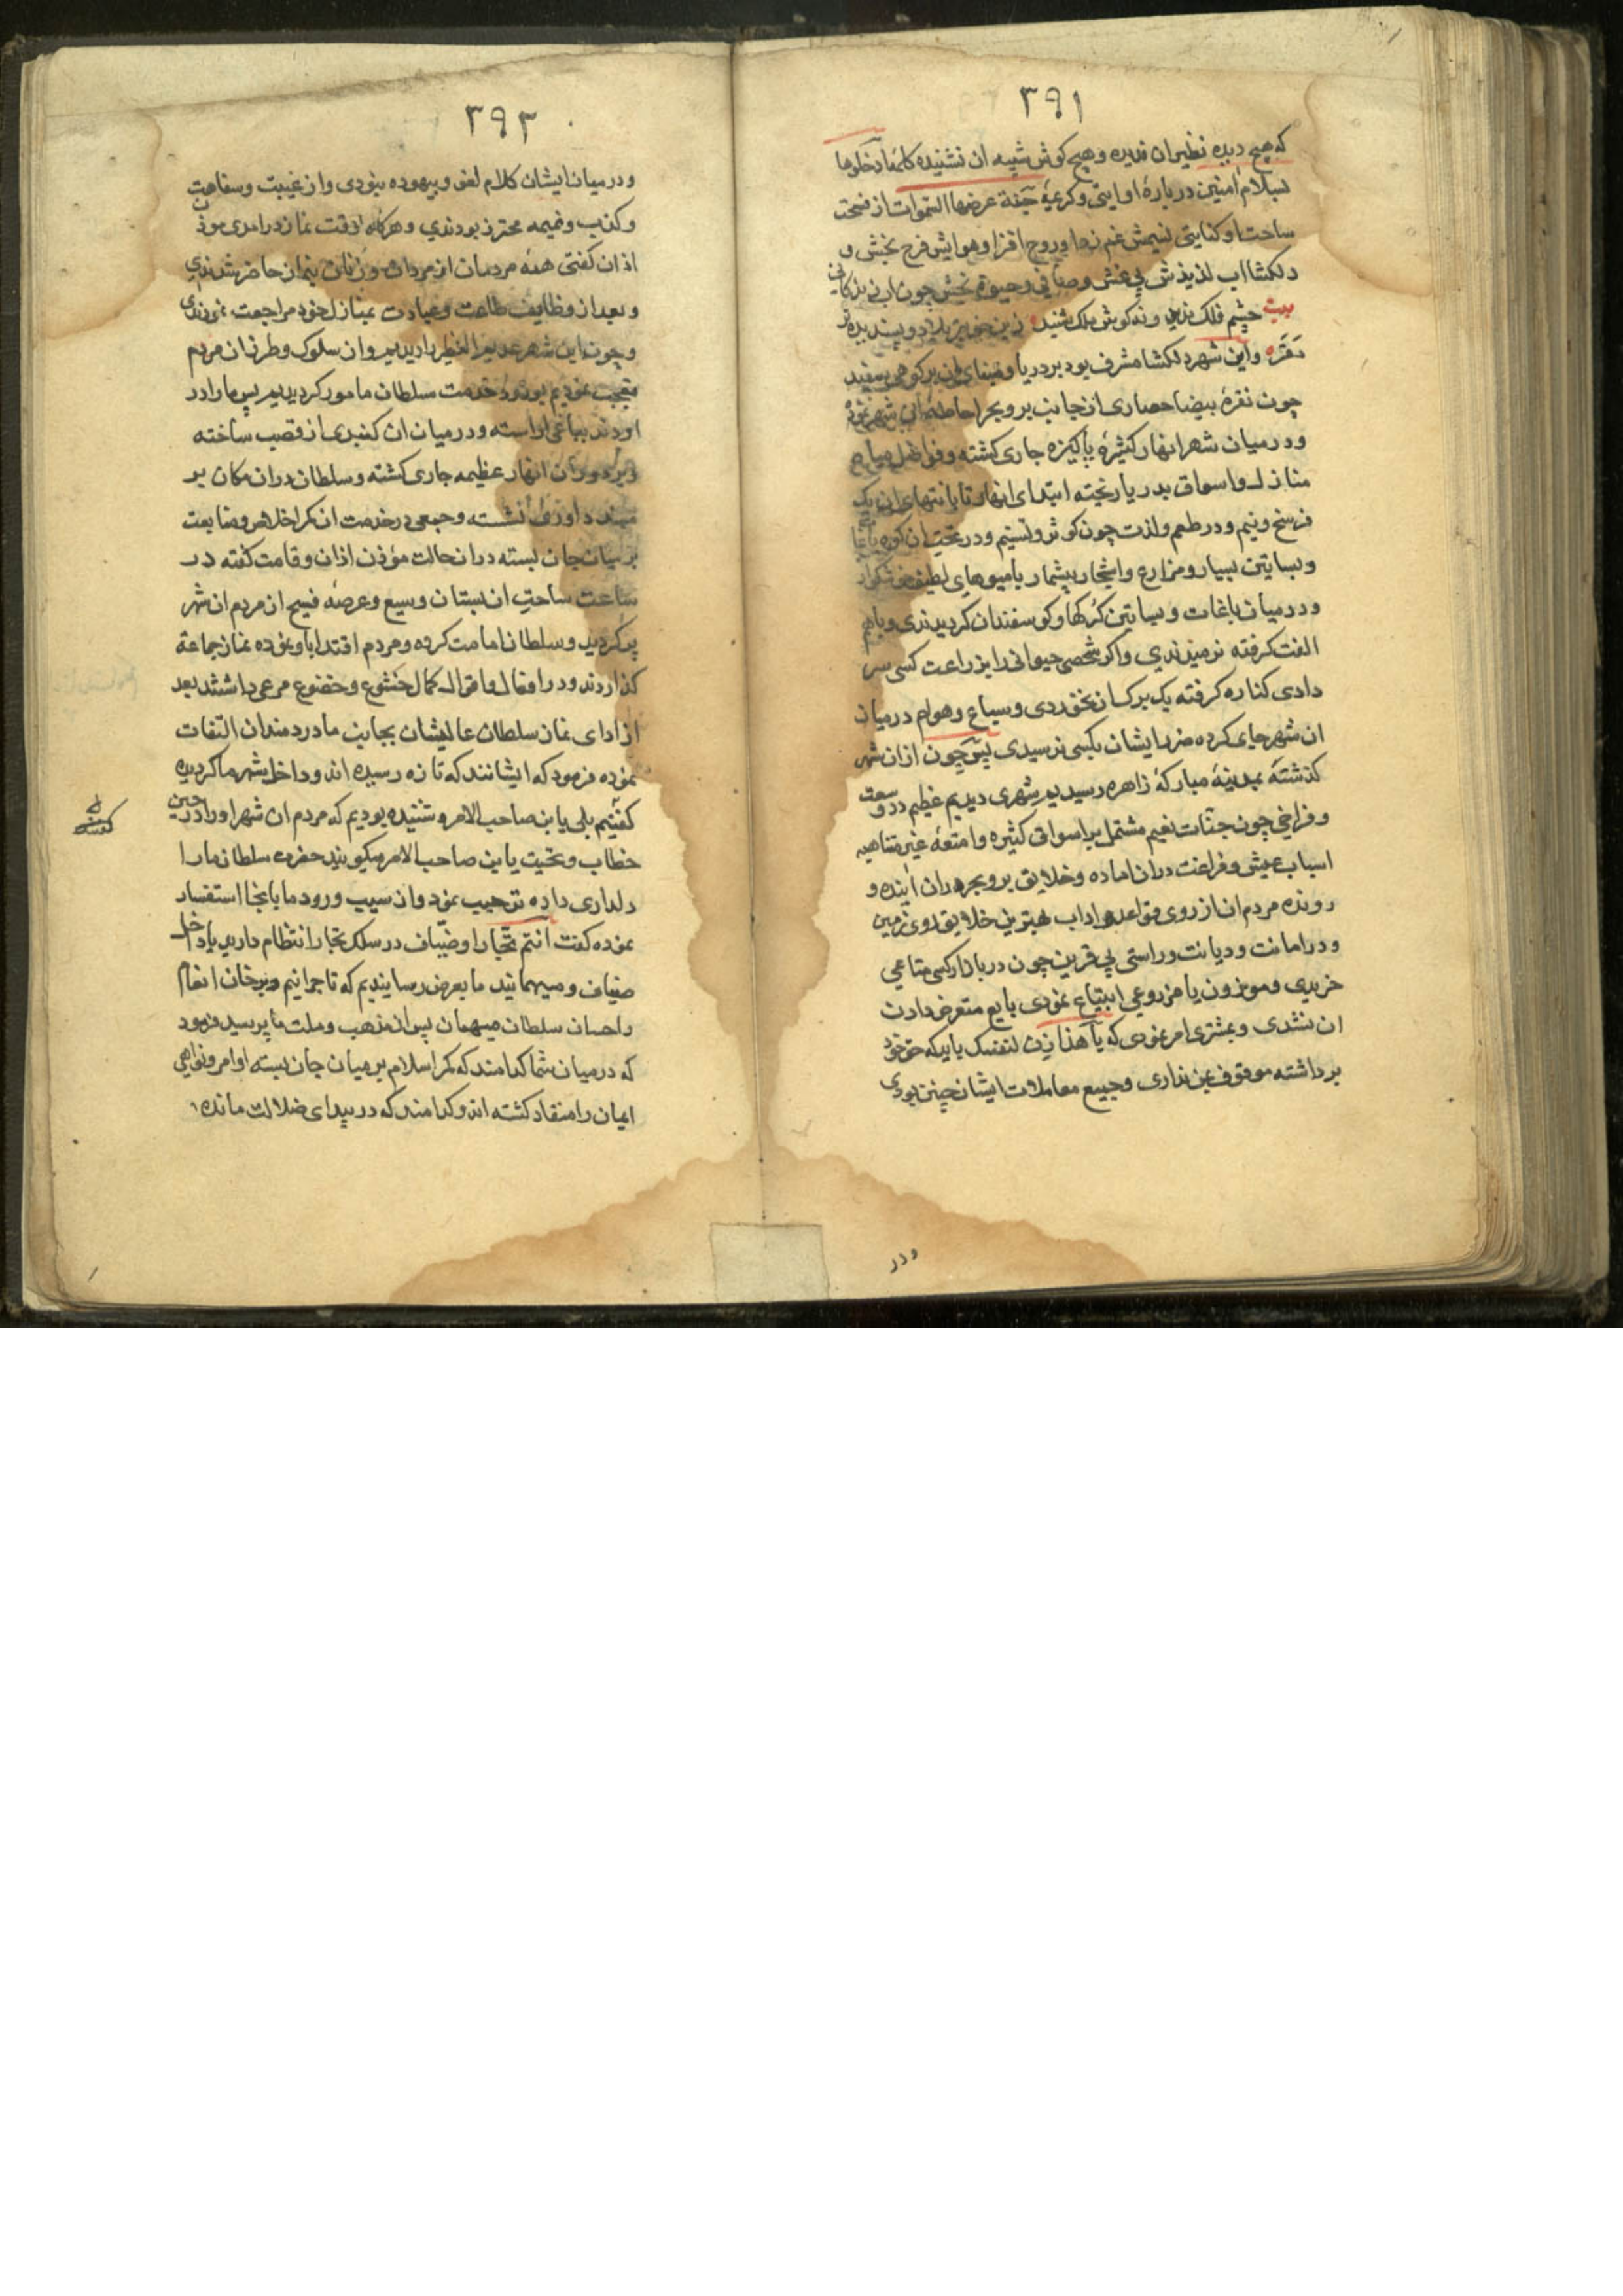 ۳۹۱
که هیچ دیده نظیر ان ندیده و هیچ کوش شبیه ان نشنیده کلمهٔ ادخلوها
بسلام امنین در بارهٔ او ایتی و کریمهٔ جنة عرضها السموات از فسحت
ساحت او کنایتی نسیمش غم زدا و روح افزا و هوایش فرح بخش و
دلکشا اب لذیذش بی غش و صافی و حیوة بخش چون اب زندکانی
بیت چشم فلک ندید و نه کوش ملک شنید زین خوبتر بلاد و پسندیده‌تر
مقر و این شهر دلکشا مشرف بود بر دریا و بنای ان بر کوهی سفید
چون نقرهٔ بیضا حصاری از جانب بر و بحر احاطهٔ ان شهر نموده
و در میان شهر انهار کثیرهٔ پاکیزه جاری کشته و فواضل میاه
منازل و اسواق بدریا ریخته ابتدای انهار تا بانتهای ان یک
فرسخ و نیم و در طعم و لذت چون کوثر و تسنیم و در تحت ان کوه باغها
و بساتین بسیار و مزارع و اشجار بیشمار با میوهای لطیف خوشکوار
و در میان باغات و بساتین کرکها و کوسفندان کردیدندی و باهم
الفت کرفته نرمیدندی و اکر شخصی حیوانی را بزراعت کسی سر
دادی کناره کرفته یک برک ان نخوردی و سباع و هوام در میان
ان شهر جای کرده ضرر ایشان بکسی نرسیدی پس چون ازان شهر
کذشته بمدینهٔ مبارکهٔ زاهره رسیدیم شهری دیدیم عظیم در وسعت
و فراخی چون جنات نعیم مشتمل بر اسواق کثیره و امتعهٔ غیر متناهیه
اسباب عیش و فراغت دران اماده و خلایق بر و بحر دران اینده و
رونده مردم ان از روی قواعد و اداب بهترین خلایق روی زمین
و در امانت و دیانت و راستی بی قرین چون در بازار کسی متاعی
خریدی و موزون یا مزروعی ابتیاع نمودی بایع متعرض دادن
ان نشدی و بمشتری امر نمودی که یا هذا زن لنفسک باید که حق خود
برداشته موقوف بمن نداری و جمیع معاملات ایشان چنین بودی
ودر
۳۹۲
و در میان ایشان کلام لغو و بیهوده نبودی و از غیبت و سفاهت
و کذب و نمیمه محترز بودندی و هرکاه وقت نماز درامدی موذن
اذان کفتی همهٔ مردمان از مردان و زنان بنماز حاضر شدندی
و بعد از وظایف طاعت و عبادت بمنازل خود مراجعت نمودندی
و چون این شهر عدیم النظیر را دیدیم و ان سلوک و طرز ان مردم
تعجب نمودیم بورود خدمت سلطان مامور کردیدیم پس ما را در
اوردند بباغی اراسته و در میان ان کنبدی از قصب ساخته
و بر دور ان انهار عظیمه جاری کشته و سلطان دران مکان بر
مسند داوری نشسته و جمعی در خدمت ان کمر اخلاص و متابعت
بر میان جان بسته دران حالت مؤذن اذان و قامت کفته در
ساعت ساحت ان بستان وسیع و عرصهٔ فسیح از مردم ان شهر
پر کردید و سلطان امامت کرده و مردم اقتدا باو نموده نماز جماعة
کذاردند و در افعال و اقوال کمال خشوع و خضوع مرعی داشتند بعد
از ادای نماز سلطان عالیشان بجانب ما دردمندان التفات
نموده فرمود که ایشانند که تازه رسیده اند و داخل شهر ما کردیده
کفتیم بلی یابن صاحب الامر و شنیده بودیم که مردم ان شهر او را در حین
خطاب و تحیت یابن صاحب الامر میکویند حضرت سلطان ما را
دلداری داده ترحیب نمود و از سبب ورود ما بانجا استفسار
نموده کفت انتم تجار او ضیاف در سلک تجار انتظام دارید یا داخل
ضیاف و میهمانید ما بعرض رسانیدیم که تاجرانیم و بر خان انعام
و احسان سلطان میهمان پس از مذهب و ملت ما پرسید فرمود
که در میان شما کدامند که کمر اسلام بر میان جان بسته اوامر و نواهی
ایمان را منقاد کشته اند و کدامند که در بیدای ضلالت مانده